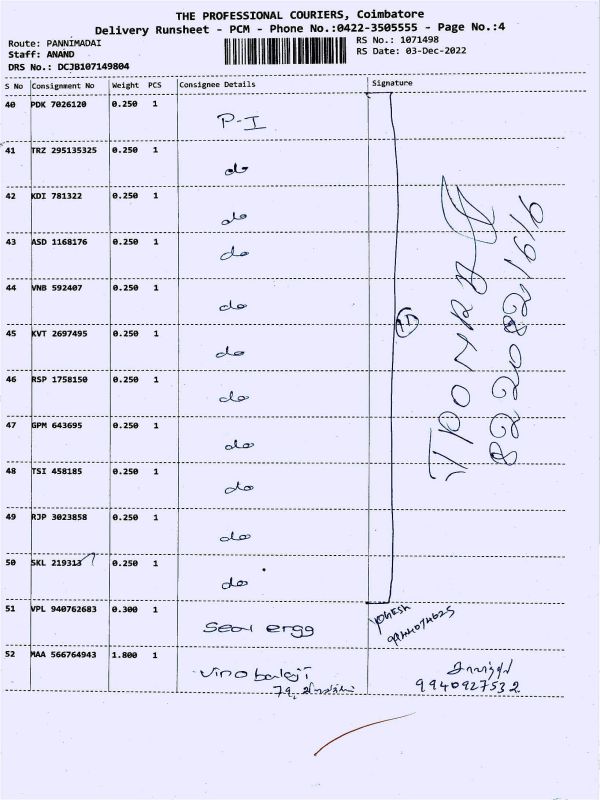 THE PROFESSIONAL COURIERS, Coimbatore
Delivery Runsheet - PCM - Phone No.:0422-3505555 - Page No.:4
Route: PANNIMADAI
RS No.: 1071498
Staff: ANAND
RS Date: 03-Dec-2022
DRS No.: DCJB107149804
S No Consignment No Weight PCS Consignee Details Signature
40 PDK 7026120 0.250 1
P-I
41 TRZ 295135325 0.250 1
do
42 KDI 781322 0.250 1
do
43 ASD 1168176 0.250 1
do
44 VNB 592407 0.250 1
do
45 KVT 2697495 0.250 1
do
46 RSP 1758150 0.250 1
do
47 GPM 643695 0.250 1
do
48 TSI 458185 0.250 1
do
49 RJP 3023858 0.250 1
do
50 SKL 219313 0.250 1
do
8220821616
51 VPL 940762683 0.300 1
52 MAA 566764943 1.800 1
vino balaji
9940927532